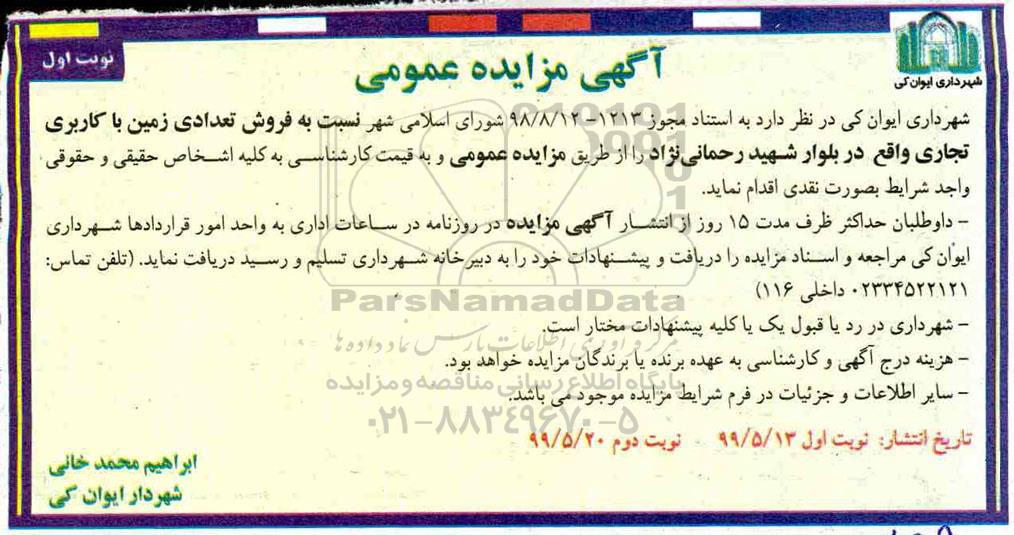 نوبت اول
شهرداری ایوان کی
آگهی مزایده عمومی
شهرداری ایوان کی در نظر دارد به استناد مجوز ۱۲۱۳- ۹۸/۸/۱۲ شورای اسلامی شهر نسبت به فروش تعدادی زمین با کاربری
تجاری واقع در بلوار شهید رحمانی‌نژاد را از طریق مزایده عمومی و به قیمت کارشناسی به کلیه اشخاص حقیقی و حقوقی
واجد شرایط بصورت نقدی اقدام نماید.
- داوطلبان حداکثر ظرف مدت ۱۵ روز از انتشار آگهی مزایده در روزنامه در ساعات اداری به واحد امور قراردادها شهرداری
ایوان کی مراجعه و اسناد مزایده را دریافت و پیشنهادات خود را به دبیرخانه شهرداری تسلیم و رسید دریافت نماید. (تلفن تماس:
۰۲۳۳۴۵۲۲۱۲۱ داخلی ۱۱۶)
ParsNamadData
- شهرداری در رد یا قبول یک یا کلیه پیشنهادات مختار است.
مرکز فرآوری اطلاعات پارس نماد داده ها
- هزینه درج آگهی و کارشناسی به عهده برنده یا برندگان مزایده خواهد بود.
پایگاه اطلاع رسانی مناقصه و مزایده
- سایر اطلاعات و جزئیات در فرم شرایط مزایده موجود می باشد.
۰۲۱-۸۸۳۴۹۶۷۰-۵
تاریخ انتشار: نوبت اول ۹۹/۵/۱۳ نوبت دوم ۹۹/۵/۲۰
ابراهیم محمد خانی
شهردار ایوان کی